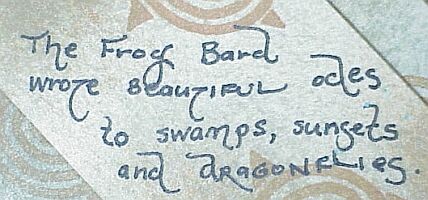 The Frog Bard
wrote BEAUTIFUL odes
to swamps, sunsets
and DRAGONFLIES.